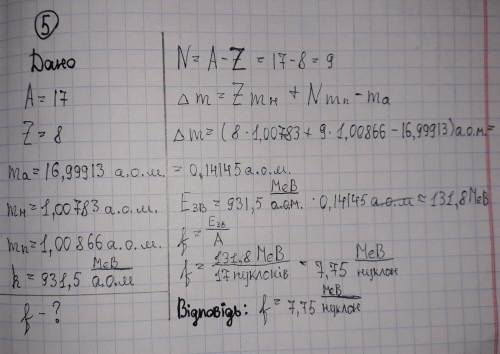 5
Дано
A = 17
Z = 8
mа = 16,99913 а.о.м.
mн = 1,00783 а.о.м.
mn = 1,00866 а.о.м.
k = 931,5 МеВ/а.о.м
f - ?
N = A - Z = 17 - 8 = 9
Δm = Z mн + N mn - mа
Δm = (8 · 1,00783 + 9 · 1,00866 - 16,99913) а.о.м. =
= 0,14145 а.о.м.
Eзв = 931,5 МеВ/а.о.м. · 0,14145 а.о.м ≈ 131,8 МеВ
f = Eзв/A
f = 131,8 МеВ/17 нуклонів = 7,75 МеВ/нуклон
Відповідь: f = 7,75 МеВ/нуклон